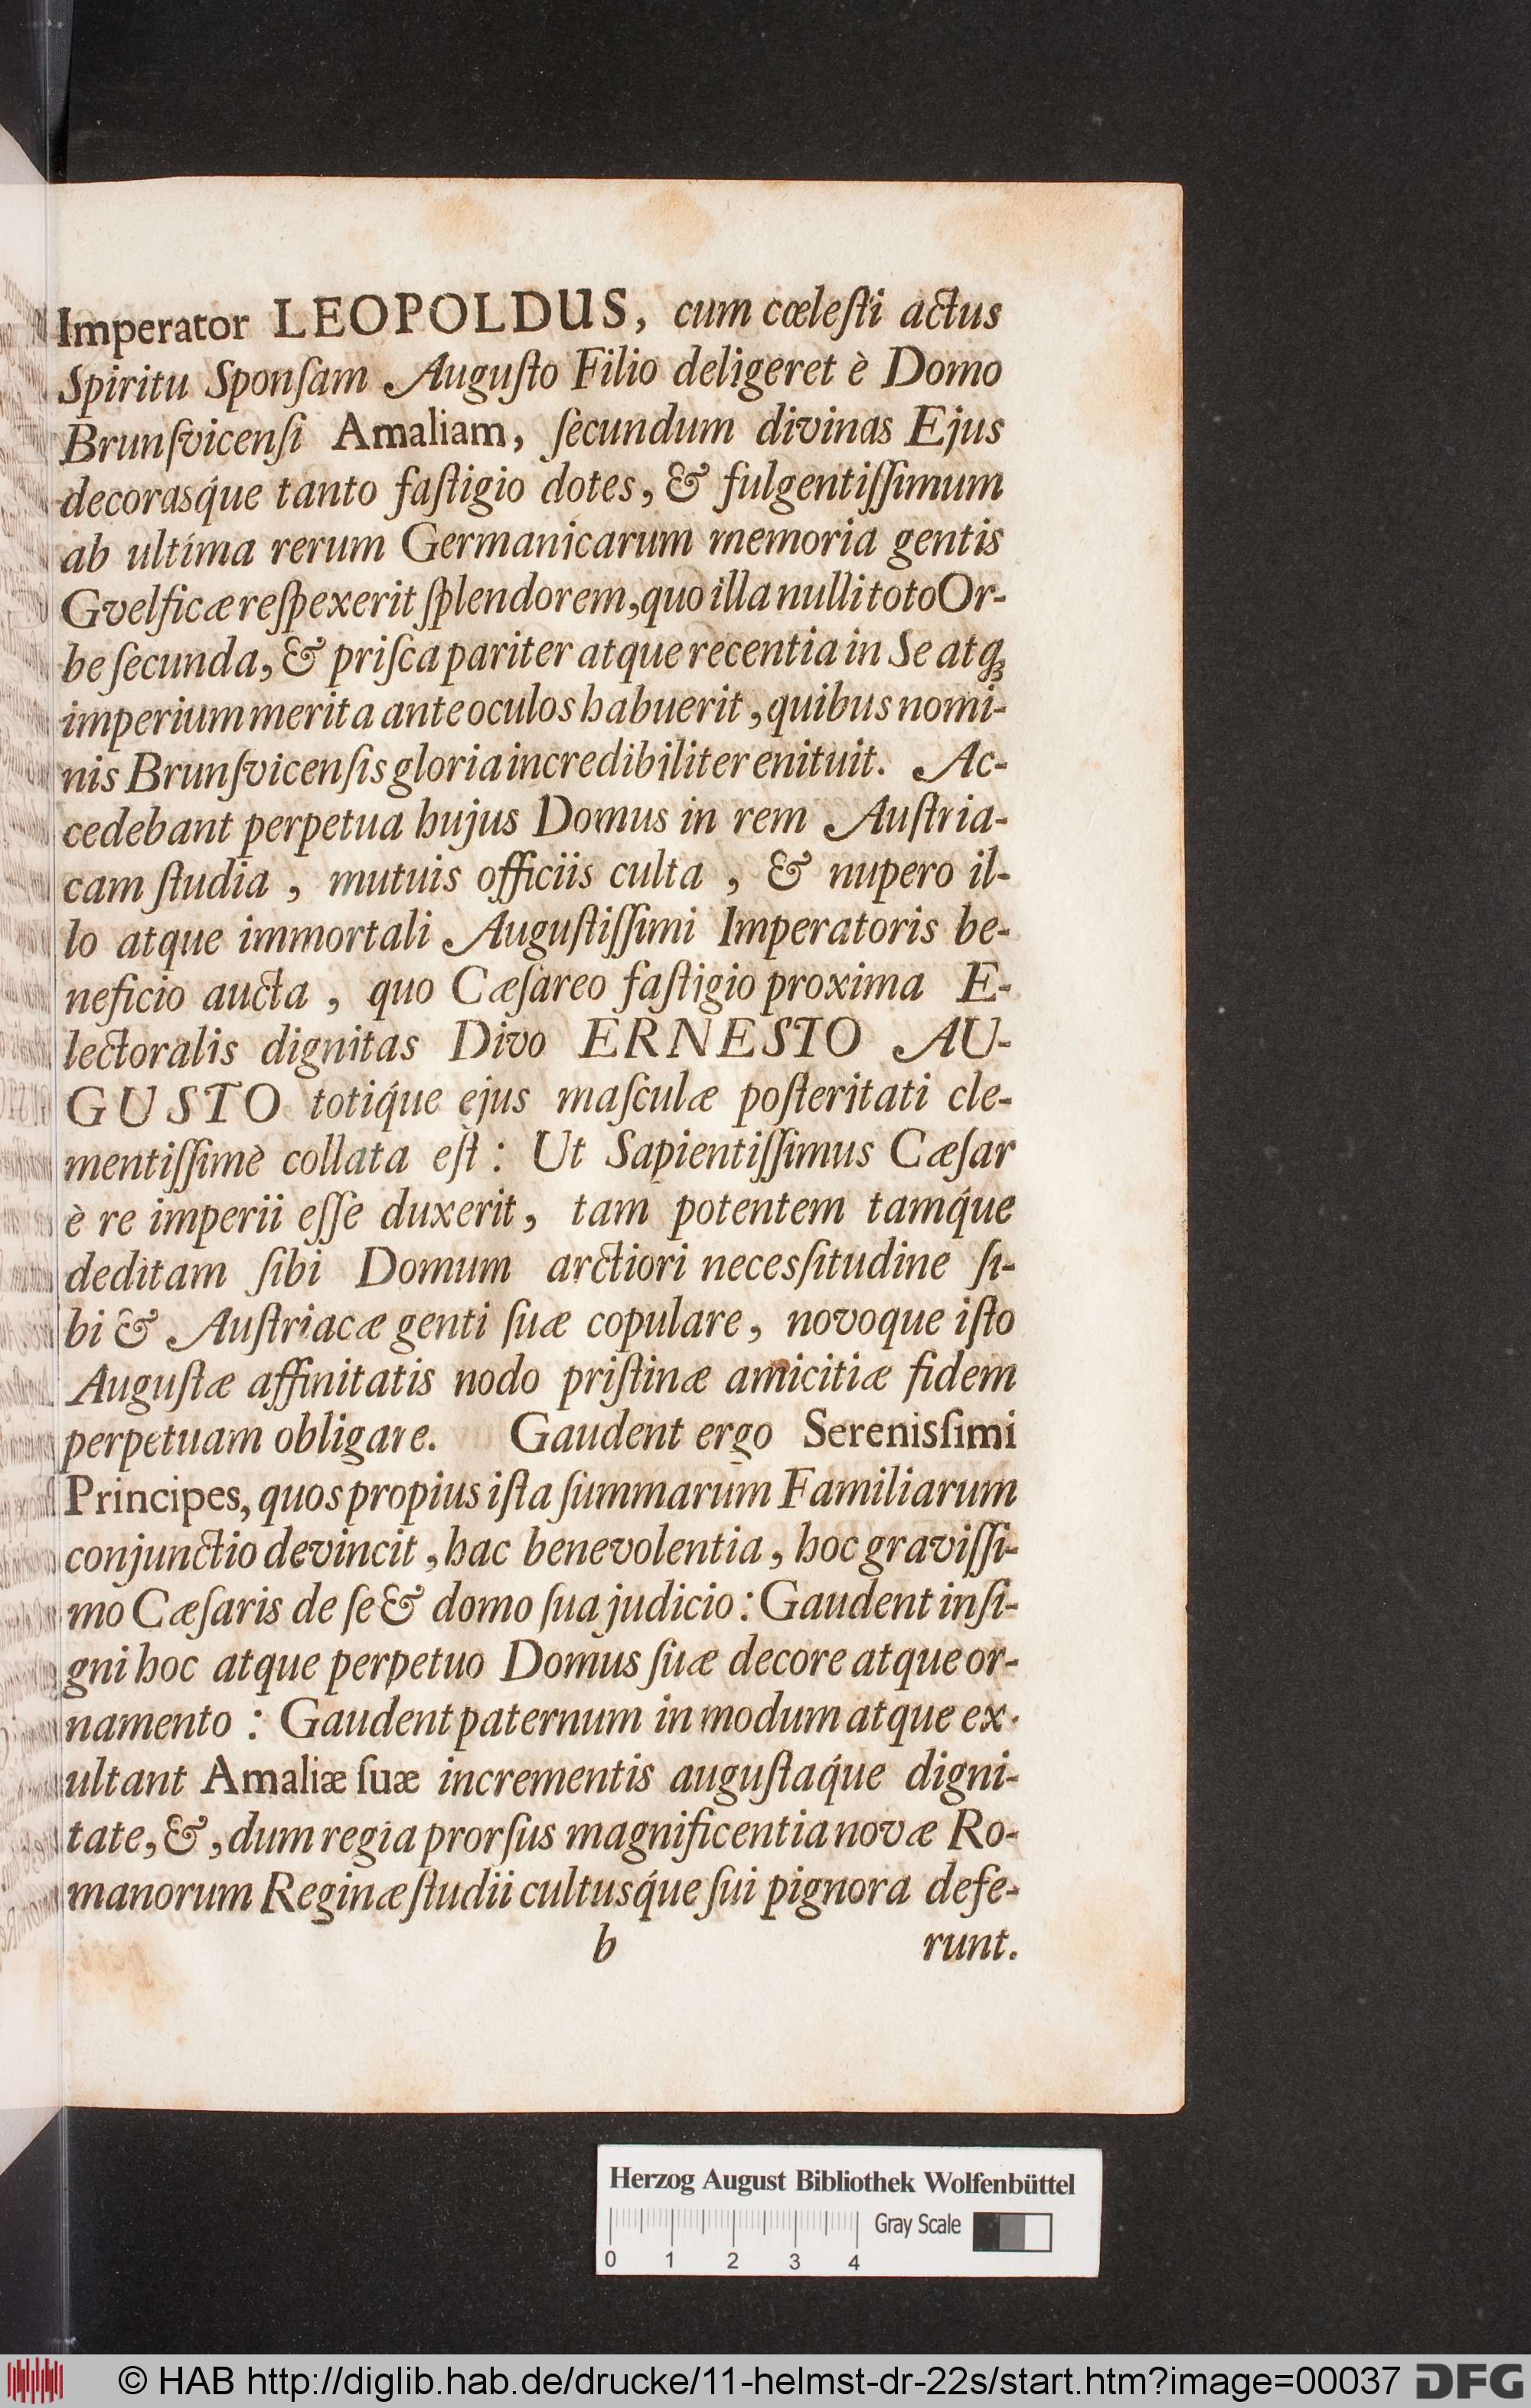 Imperator LEOPOLDUS, cum cœleſti actus
Spiritu Sponſam Auguſto Filio deligeret è Domo
Brunſvicenſi Amaliam, ſecundum divinas Ejus
decorasq́ue tanto faſtigio dotes, & fulgentiſſimum
ab ultima rerum Germanicarum memoria gentis
Gvelficæ reſpexerit ſplendorem, quo illa nulli toto Or-
be ſecunda, & priſca pariter atque recentia in Se atqꝫ
imperium merita ante oculos habuerit, quibus nomi-
nis Brunſvicenſis gloria incredibiliter enituit. Ac-
cedebant perpetua hujus Domus in rem Auſtria-
cam ſtudia, mutuis officiis culta, & nupero il-
lo atque immortali Auguſtiſſimi Imperatoris be-
neficio aucta, quo Cæſareo faſtigio proxima E-
lectoralis dignitas Divo ERNESTO AU-
GUSTO totiq́ue ejus maſculæ poſteritati cle-
mentiſſimè collata eſt: Ut Sapientiſſimus Cæſar
è re imperii eſſe duxerit, tam potentem tamq́ue
deditam ſibi Domum arctiori necesſitudine ſi-
bi & Auſtriacæ genti ſuæ copulare, novoque iſto
Auguſtæ affinitatis nodo priſtinæ amicitiæ fidem
perpetuam obligare. Gaudent ergo Serenisſimi
Principes, quos propius iſta ſummarum Familiarum
conjunctio devincit, hac benevolentia, hoc graviſſi-
mo Cæſaris de ſe & domo ſua judicio: Gaudent inſi-
gni hoc atque perpetuo Domus ſuæ decore atque or-
namento: Gaudent paternum in modum atque ex-
ultant Amaliæ ſuæ incrementis auguſtaq́ue digni-
tate, &, dum regia prorſus magnificentia novæ Ro-
manorum Reginæ ſtudii cultusq́ue ſui pignora defe-
b runt.
Herzog August Bibliothek Wolfenbüttel
Gray Scale
0 1 2 3 4
© HAB http://diglib.hab.de/drucke/11-helmst-dr-22s/start.htm?image=00037 DFG